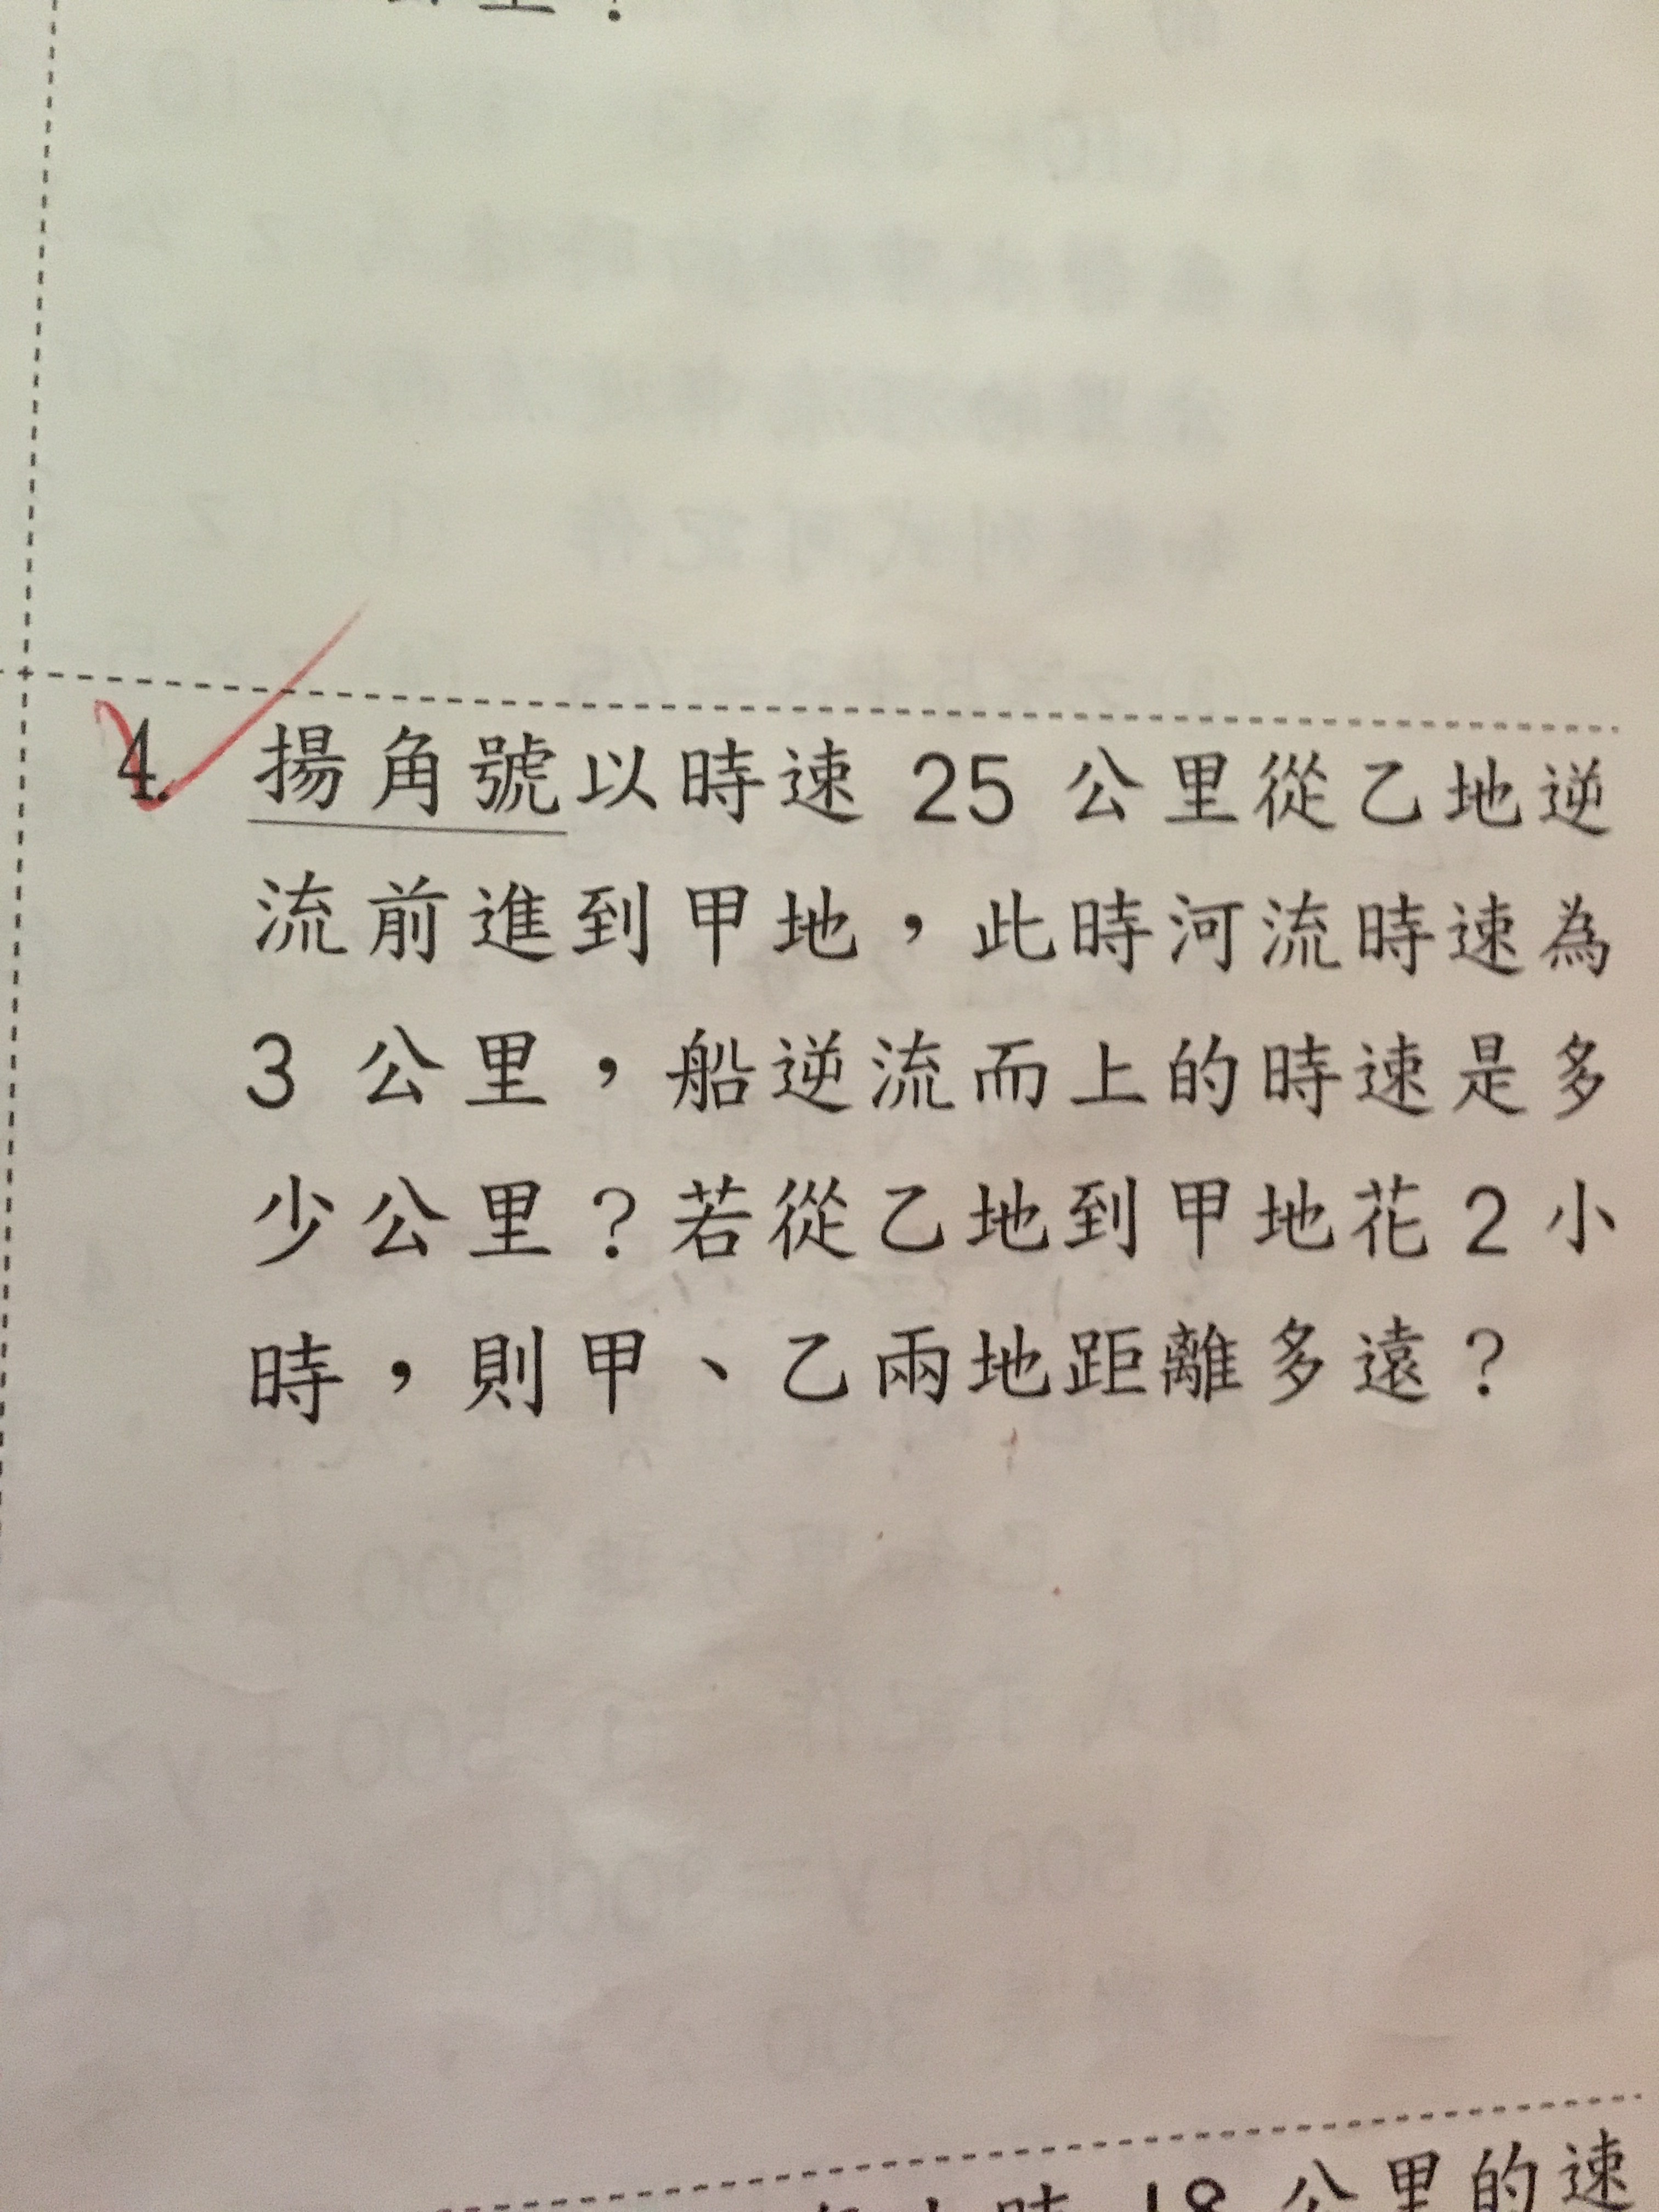 4. 揚角號以時速 25 公里從乙地逆
流前進到甲地，此時河流時速為
3 公里，船逆流而上的時速是多
少公里？若從乙地到甲地花 2 小
時，則甲、乙兩地距離多遠？
時 18 公里的速